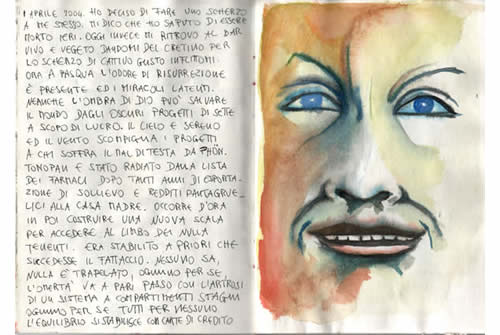 1 APRILE 2004. HO DECISO DI FARE UNO SCHERZO
A ME STESSO. MI DICO CHE HO SAPUTO DI ESSERE
MORTO IERI. OGGI INVECE MI RITROVO AL BAR
VIVO E VEGETO DANDOMI DEL CRETINO PER
LO SCHERZO DI CATTIVO GUSTO INFLITTOMI.
ORA A PASQUA L'ODORE DI RISURREZIONE
È PRESENTE ED I MIRACOLI LATENTI.
NEANCHE L'OMBRA DI DIO PUÒ SALVARE
IL MONDO DAGLI OSCURI PROGETTI DI SETTE
A SCOPO DI LUCRO. IL CIELO È SERENO
ED IL VENTO SCOMPIGLIA I PROGETTI
A CHI SOFFRA IL MAL DI TESTA DA PHÖN.
TONOPAN È STATO RADIATO DALLA LISTA
DEI FARMACI DOPO TANTI ANNI DI ESPORTA-
ZIONE DI SOLLIEVO E REDDITI PANTAGRUE-
LICI ALLA CASA MADRE. OCCORRE D'ORA
IN POI COSTRUIRE UNA NUOVA SCALA
PER ACCEDERE AL LIMBO DEI NULLA
TENENTI. ERA STABILITO A PRIORI CHE
SUCCEDESSE IL FATTACCIO. NESSUNO SA,
NULLA È TRAPELATO, OGNUNO PER SÉ,
L'OMERTÀ VA A PARI PASSO CON L'ARTROSI
DI UN SISTEMA A COMPARTIMENTI STAGNI
OGNUNO PER SE TUTTI PER NESSUNO
L'EQUILIBRIO SI STABILISCE CON CARTE DI CREDITO